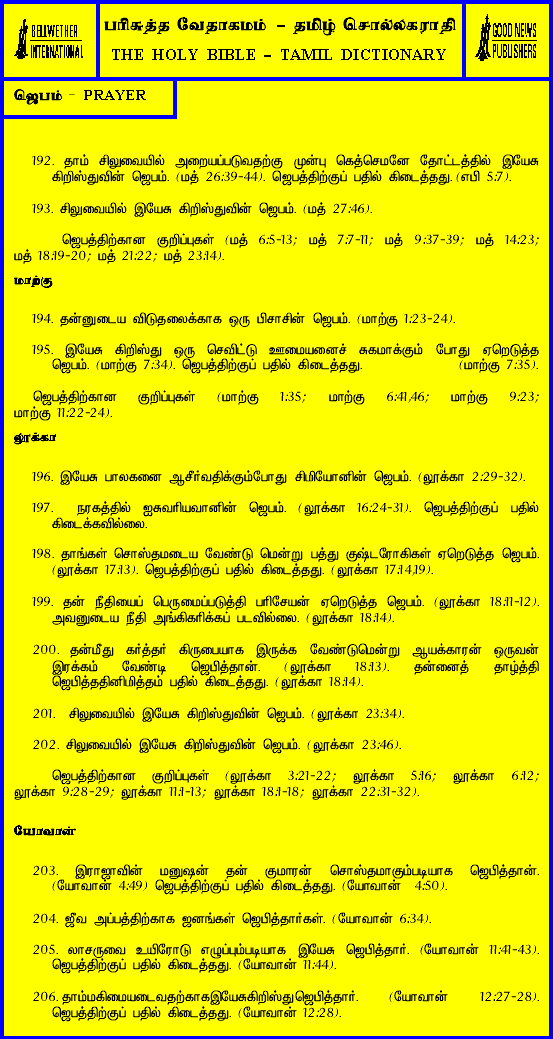 BELLWETHER
INTERNATIONAL
பரிசுத்த வேதாகமம் - தமிழ் சொல்லகராதி
THE HOLY BIBLE - TAMIL DICTIONARY
GOOD NEWS
PUBLISHERS
ஜெபம் - PRAYER
192. தாம் சிலுவையில் அறையப்படுவதற்கு முன்பு கெத்செமனே தோட்டத்தில் இயேசு
கிறிஸ்துவின் ஜெபம். (மத் 26:39-44). ஜெபத்திற்குப் பதில் கிடைத்தது. (எபி 5:7).
193. சிலுவையில் இயேசு கிறிஸ்துவின் ஜெபம். (மத் 27:46).
ஜெபத்திற்கான குறிப்புகள் (மத் 6:5-13; மத் 7:7-11; மத் 9:37-39; மத் 14:23;
மத் 18:19-20; மத் 21:22; மத் 23:14).
மாற்கு
194. தன்னுடைய விடுதலைக்காக ஒரு பிசாசின் ஜெபம். (மாற்கு 1:23-24).
195. இயேசு கிறிஸ்து ஒரு செவிட்டு ஊமையனைச் சுகமாக்கும் போது ஏறெடுத்த
ஜெபம். (மாற்கு 7:34). ஜெபத்திற்குப் பதில் கிடைத்தது. (மாற்கு 7:35).
ஜெபத்திற்கான குறிப்புகள் (மாற்கு 1:35; மாற்கு 6:41,46; மாற்கு 9:23;
மாற்கு 11:22-24).
லூக்கா
196. இயேசு பாலகனை ஆசீர்வதிக்கும்போது சிமியோனின் ஜெபம். (லூக்கா 2:29-32).
197. நரகத்தில் ஐசுவரியவானின் ஜெபம். (லூக்கா 16:24-31). ஜெபத்திற்குப் பதில்
கிடைக்கவில்லை.
198. தாங்கள் சொஸ்தமடைய வேண்டு மென்று பத்து குஷ்டரோகிகள் ஏறெடுத்த ஜெபம்.
(லூக்கா 17:13). ஜெபத்திற்குப் பதில் கிடைத்தது. (லூக்கா 17:14,19).
199. தன் நீதியைப் பெருமைப்படுத்தி பரிசேயன் ஏறெடுத்த ஜெபம். (லூக்கா 18:11-12).
அவனுடைய நீதி அங்கிகரிக்கப் படவில்லை. (லூக்கா 18:14).
200. தன்மீது கர்த்தர் கிருபையாக இருக்க வேண்டுமென்று ஆயக்காரன் ஒருவன்
இரக்கம் வேண்டி ஜெபித்தான். (லூக்கா 18:13). தன்னைத் தாழ்த்தி
ஜெபித்ததினிமித்தம் பதில் கிடைத்தது. (லூக்கா 18:14).
201. சிலுவையில் இயேசு கிறிஸ்துவின் ஜெபம். (லூக்கா 23:34).
202. சிலுவையில் இயேசு கிறிஸ்துவின் ஜெபம். (லூக்கா 23:46).
ஜெபத்திற்கான குறிப்புகள் (லூக்கா 3:21-22; லூக்கா 5:16; லூக்கா 6:12;
லூக்கா 9:28-29; லூக்கா 11:1-13; லூக்கா 18:1-18; லூக்கா 22:31-32).
யோவான்
203. இராஜாவின் மனுஷன் தன் குமாரன் சொஸ்தமாகும்படியாக ஜெபித்தான்.
(யோவான் 4:49) ஜெபத்திற்குப் பதில் கிடைத்தது. (யோவான் 4:50).
204. ஜீவ அப்பத்திற்காக ஜனங்கள் ஜெபித்தார்கள். (யோவான் 6:34).
205. லாசருவை உயிரோடு எழுப்பும்படியாக இயேசு ஜெபித்தார். (யோவான் 11:41-43).
ஜெபத்திற்குப் பதில் கிடைத்தது. (யோவான் 11:44).
206. தாம்மகிமையடைவதற்காகஇயேசுகிறிஸ்துஜெபித்தார். (யோவான் 12:27-28).
ஜெபத்திற்குப் பதில் கிடைத்தது. (யோவான் 12:28).